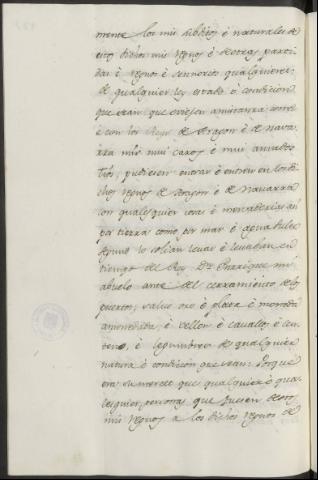 mente los mis subditos è naturales de
estos dichos mis regnos è de otras parti
das è regnos è sennorios qualesquieres
de qualquier ley estado è condicion
que sean que oviesen amistanza comi
è con los Reyes de Aragon è de nava
rra mis mui caros è mui amados
tios, pudiesen entrar è entren en los di
chos regnos de Aragon è de Navarra
con qualesquier cosas è mercaderias así
por tierra como por mar è agua dulce
segund lo solian levar è levaban en
tiempo del Rey Dn Enrrique mi
abuelo ante del cerramiento de los
puertos, salvo oro è plata è moneda
amonedada è vellon è cavallos è cen
teno, è legumbres de qualquier
natura è condicion que sean: Porque
era su merced que qualquier è qua
lesquier personas que fuesen de estos
mis regnos a los dichos regnos de